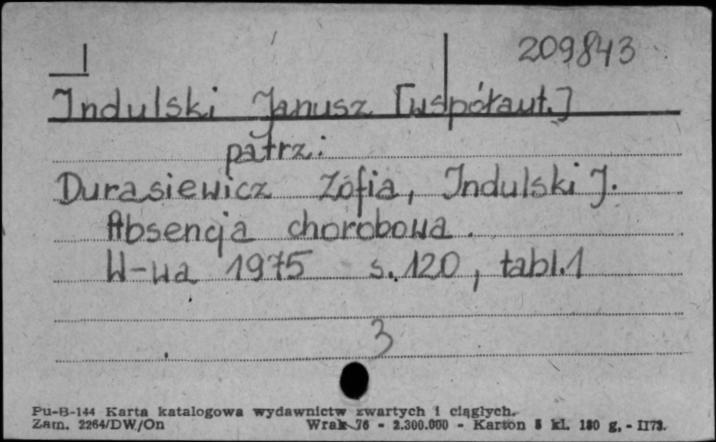 209843
Indulski Janusz [współaut.]
patrz:
Durasiewicz Zofia, Indulski J.
Absencja chorobowa.
W-wa 1975 s. 120, tabl. 1
3
Pu-B-144 Karta katalogowa wydawnictw zwartych i ciągłych.
Zam. 2264/DW/On Wrak 76 - 2.300.000 - Karton 5 kl. 180 g, - II73.